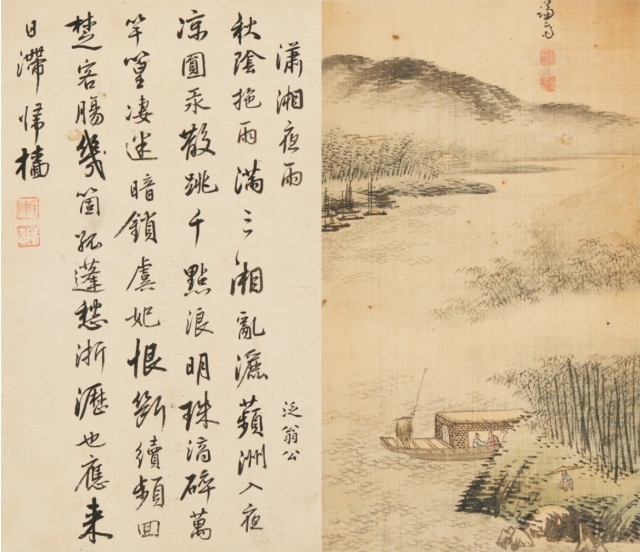 謙斎
瀟湘夜雨
泛翁公
秋陰拖雨滿三湘亂灑蘋洲入夜
凉圓汞散跳千點浪明珠滴碎萬
竿篁凄迷暗鎖虞妃恨斷續頻回
楚客膓幾箇孤蓬愁淅瀝也應来
日滯帰檣